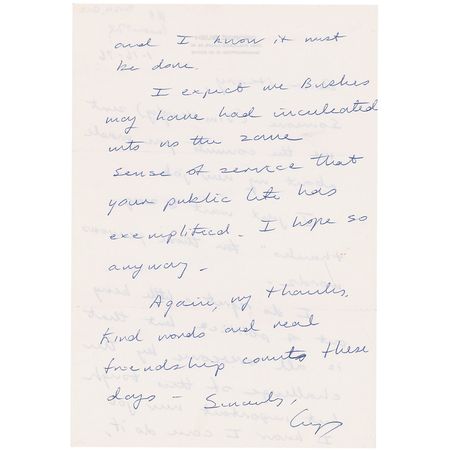 and I know it must
be done.
I expect we Bushes
may have had inculcated
into us the same
sense of service that
your public life has
exemplified - I hope so
anyway -
Again, my thanks,
Kind words and real
friendship counts these
days - Sincerely,